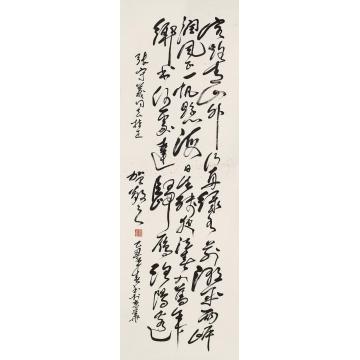 客路青山外行舟綠水前潮平兩岸
闊風正一帆懸海日生殘夜江春入舊年
鄉書何處達歸雁洛陽邊
張守義同志指正
賀敬之